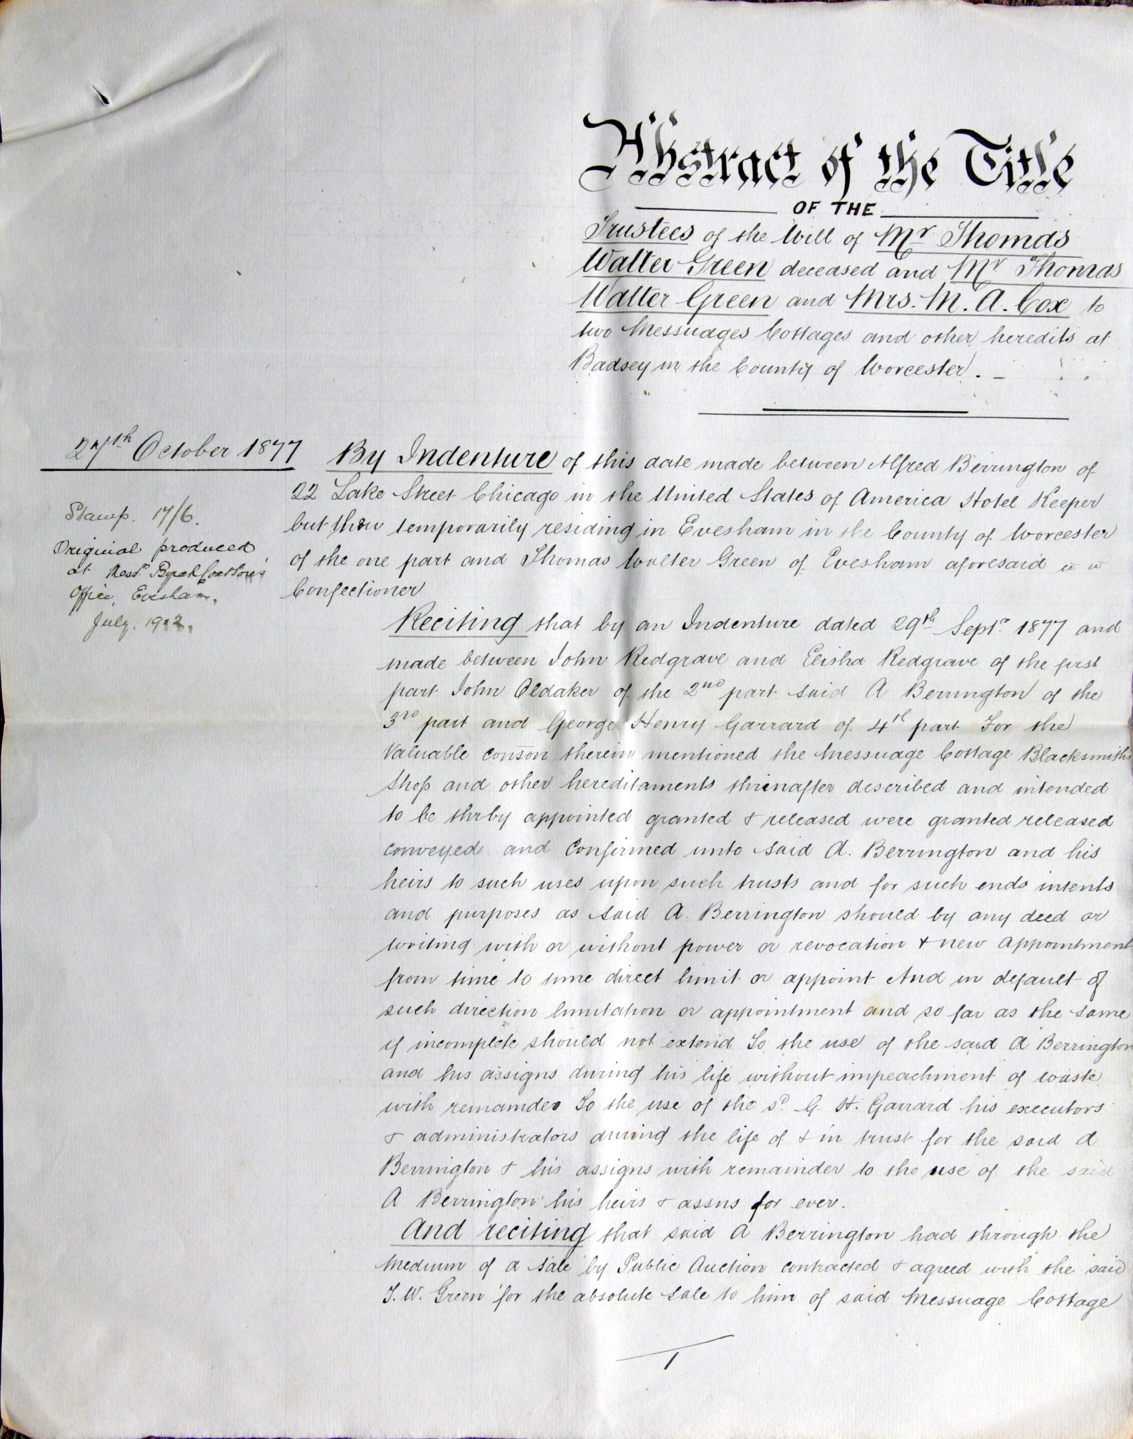 Abstract of the Title
OF THE
Trustees of the Will of Mr Thomas
Walter Green deceased and Mr Thomas
Walter Green and Mrs. M. A. Cox to
two Messuages Cottages and other heredits at
Badsey in the County of Worcester. -
27th October 1877
Stamp. 17/6.
Original produced
at Messrs
Office, Evesham.
July. 1912.
By Indenture of this date made between Alfred Berrington of
22 Lake Street Chicago in the United States of America Hotel Keeper
but then temporarily residing in Evesham in the County of Worcester
of the one part and Thomas Walter Green of Evesham aforesaid
Confectioner
Reciting that by an Indenture dated 29th Septr 1877 and
made between John Redgrave and Elisha Redgrave of the first
part John Oldaker of the 2nd part said A Berrington of the
3rd part and George Henry Garrard of 4th part For the
valuable conson therein mentioned the Messuage Cottage Blacksmiths
Shop and other hereditaments thrinafter described and intended
to be thrby appointed granted & released were granted released
conveyed and confirmed unto said A. Berrington and his
heirs to such uses upon such trusts and for such ends intents
and purposes as said A Berrington should by any deed or
writing with or without power or revocation & new appointment
from time to time direct limit or appoint And in default of
such direction limitation or appointment and so far as the same
if incomplete should not extend To the use of the said A Berrington
and his assigns during his life without impeachment of waste
with remainder To the use of the sd. G. H. Garrard his executors
& administrators during the life of & in trust for the said A
Berrington & his assigns with remainder to the use of the said
A Berrington his heirs & assns for ever.
And reciting that said A Berrington had through the
medium of a Sale by Public Auction contracted & agreed with the said
T. W. Green for the absolute Sale to him of said Messuage Cottage
1